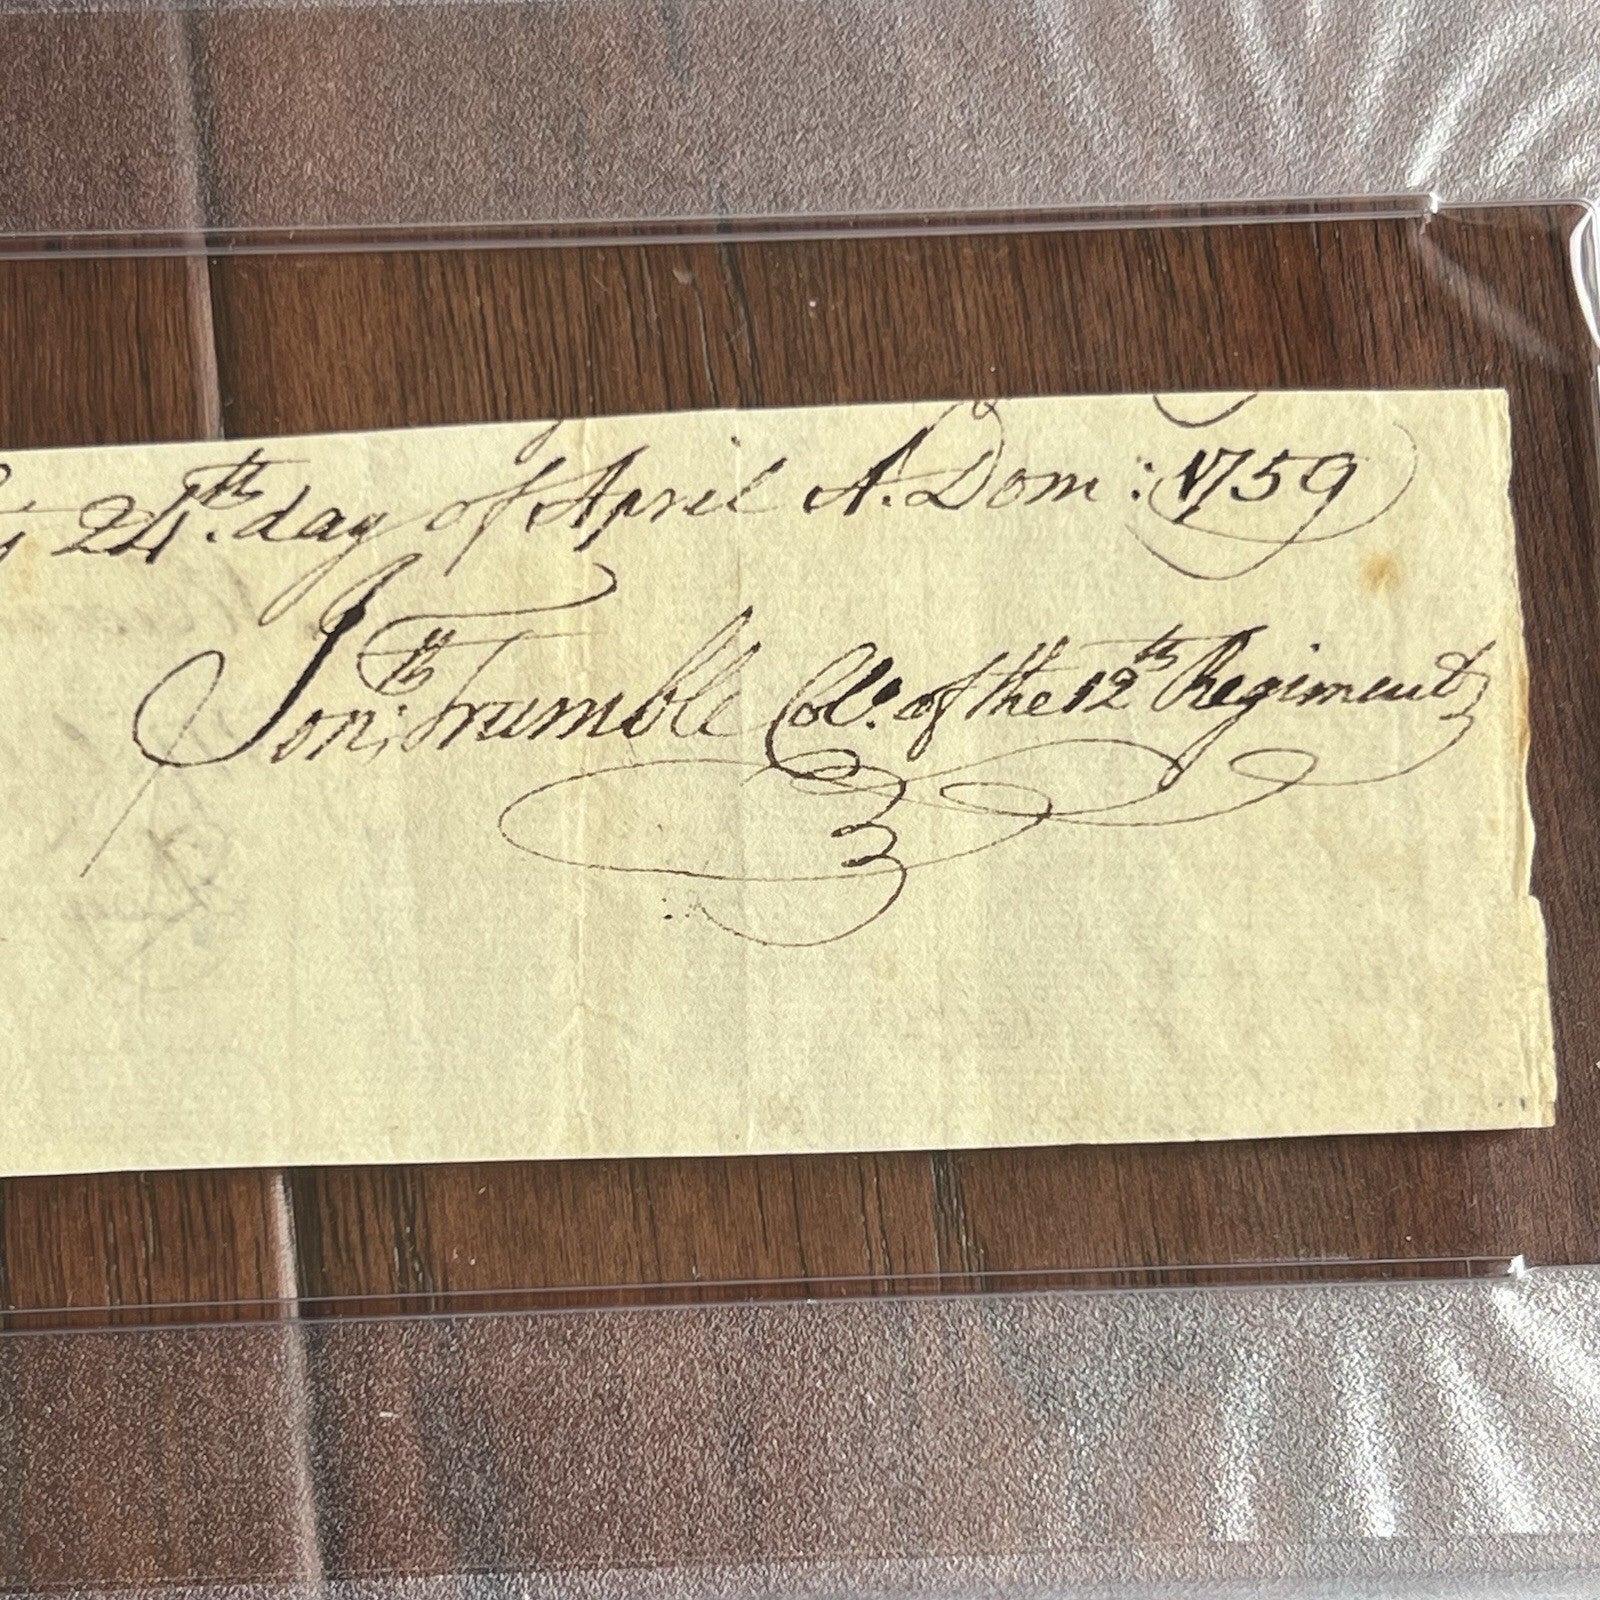 24th. day of April A. Dom: 1759
Jonth; Trumble Colo. of the 12th Regiment